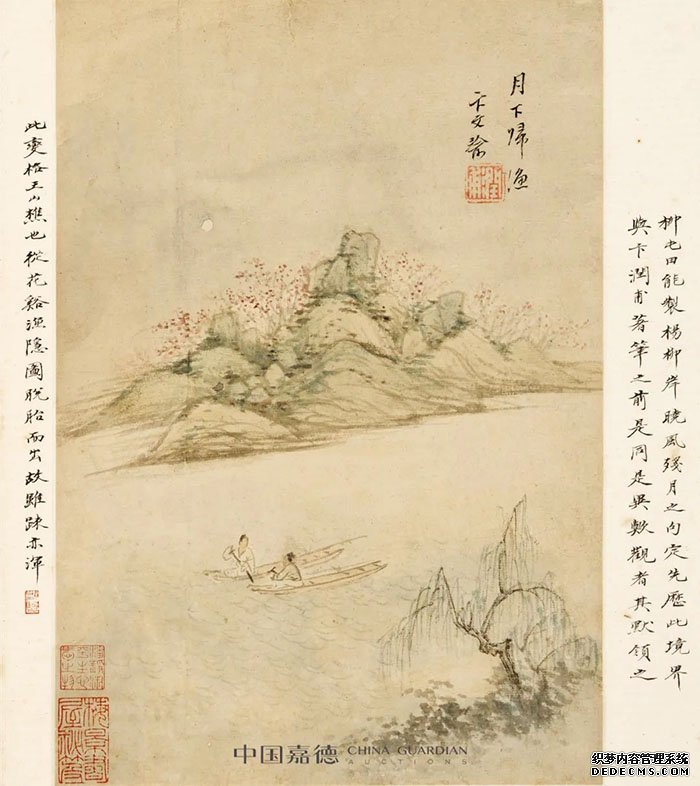 柳屯田能製楊柳岸曉風殘月之句定先歷此境界
與卞潤甫著筆之前是同是異歟觀者其默領之
月下歸漁
卞文瑜
此變格王山樵也從花谿漁隱圖脫胎而出故雖疎亦渾
梅景書
屋秘笈
中国嘉德 CHINA GUARDIAN
AUCTIONS
织梦内容管理系统
DEDECMS.COM